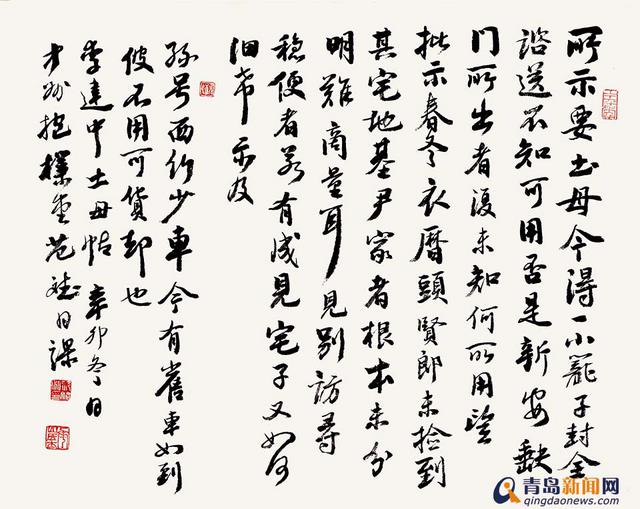 所示要土母今得一小籠子封全
諮送不知可用否是新安缺
門所出者復未知何所用望
批示春冬衣曆頭賢郎未撿到
其宅地基尹家者根本未分
明難商量耳見別訪尋
穩便者若有成見宅子又如何
細希示及
孫号西行少車今有舊車如到
彼不用可貨却也
李建中土母帖 辛卯冬日
抱樸堂范日課
青岛新闻网
qingdaonews.com